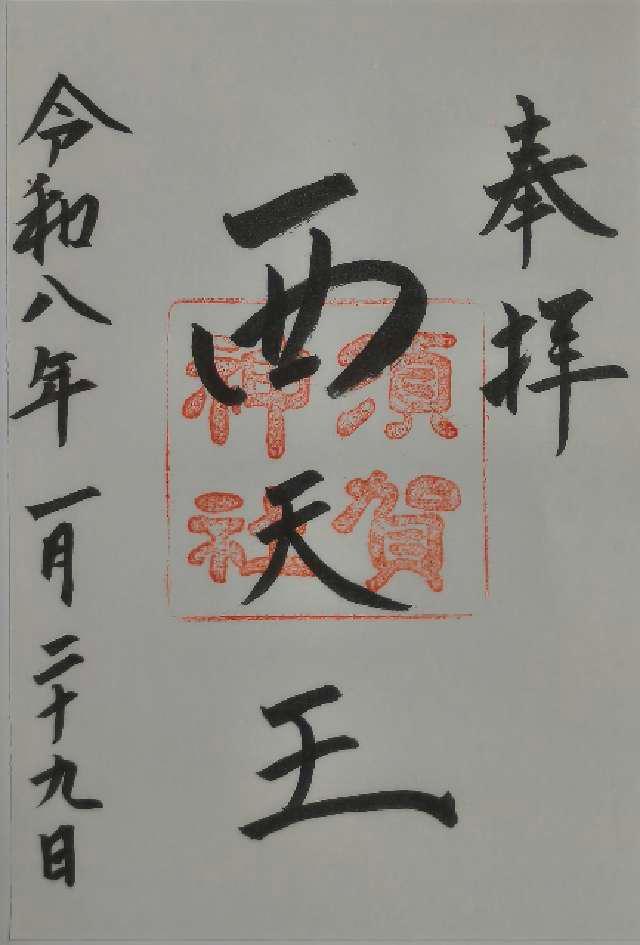 奉拝
西天王
須賀
神社
令和八年一月二十九日